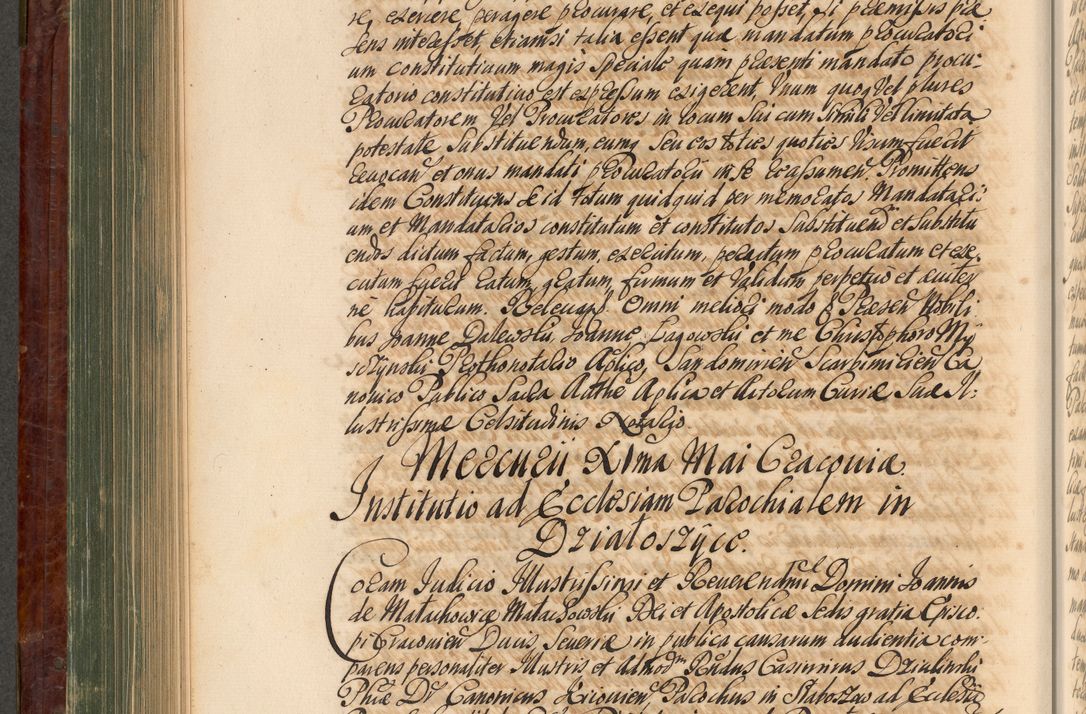 re, exercere, peragere procurare, et exequi posset, si præmissis præ
sens interesset, etiamsi talia essent quæ mandatum procuratori
um constitutivum magis speciale quam præsenti mandato procu-
ratorio constitutivo est expressum exigerent, Unum quoq Vel plures
Procuratorem Vel Procuratores in locum sui cum simili Vel limitata
potestate substituendum, eumq seu eos toties quoties Visum fuerit
revocan et onus mandati procuratorii in se reassumen. Promittens
idem Constituens se id totum quidquid per memoratos Mandatari-
um et Mandatarios constitutum et constitutos substituend et substitu
endos dictum factum, gestum, exercitum, peractum procuratum et exe-
cutum fuerit ratum, gratum, firmum et Validum perpetuo et æviter
ne habiturum. Relevans Omni meliori modo Præsen Nobili
bus Joanne Dalewski, Joanne Lagowski et me Christophoro My
szynski Prothonotario Aplico, Sandomirien Scarbimirien Ca
nonico Publico Sacra Autthe Aplica et Actorum Curiæ Suæ Il-
lustrissimæ Celsitudinis Notario.
Mercurii Xima Mai Cracoviæ
Institutio ad Ecclesiam Parochialem in
Działoszyce.
Coram Judicio Illustrissimi et Reverendmi Domini Joannis
de Małachowice Małachowski Dei et Apostolicæ Sedis gratia Episco-
pi Cracovien Ducis Severiæ in publica causarum audientia com-
parens personaliter Illustris et Admod Rndus Casimirus Dzialinski
Phiæ Dr Canonicus Kijovien, Parochus in Slaboszow ad Ecclesiæ